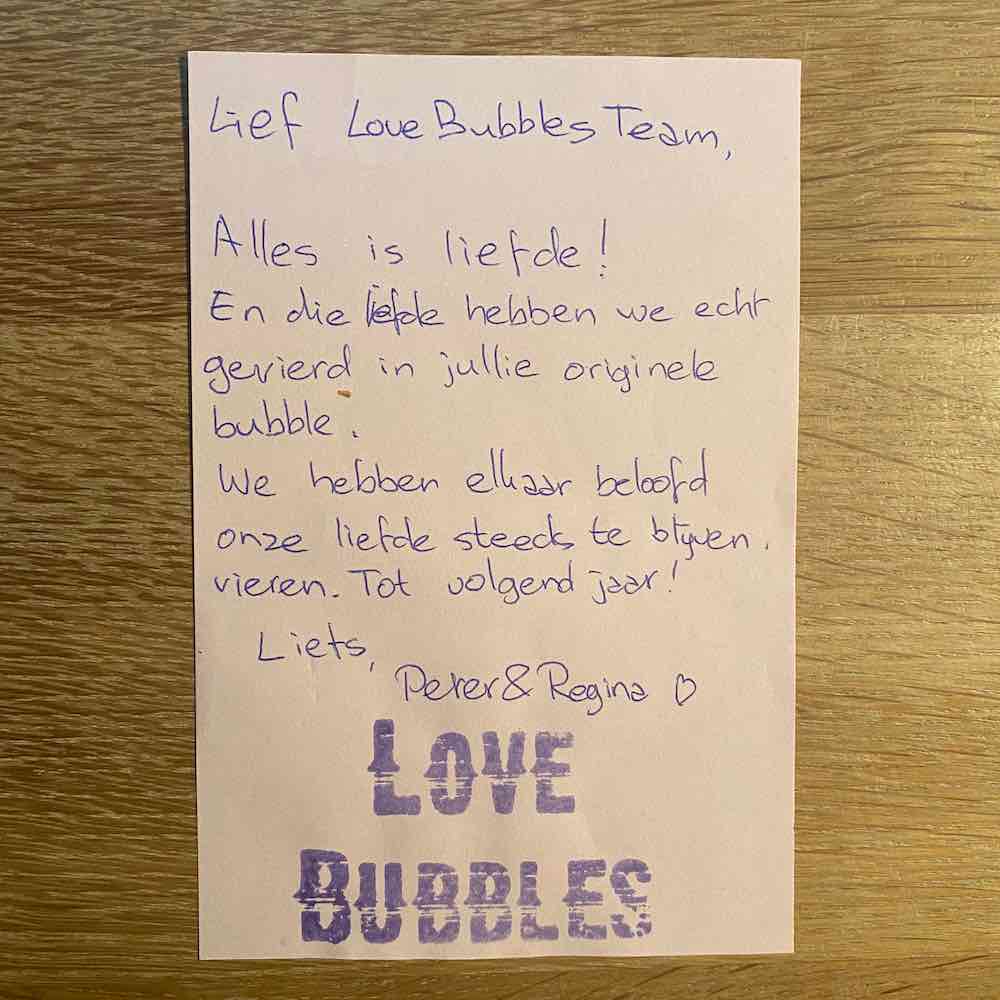 Lief Love Bubbles Team,
Alles is liefde!
En die liefde hebben we echt
gevierd in jullie originele
bubble.
We hebben elkaar beloofd
onze liefde steeds te blijven
vieren. Tot volgend jaar!
Liefs,
Peter & Regina ♡
LOVE
BUBBLES